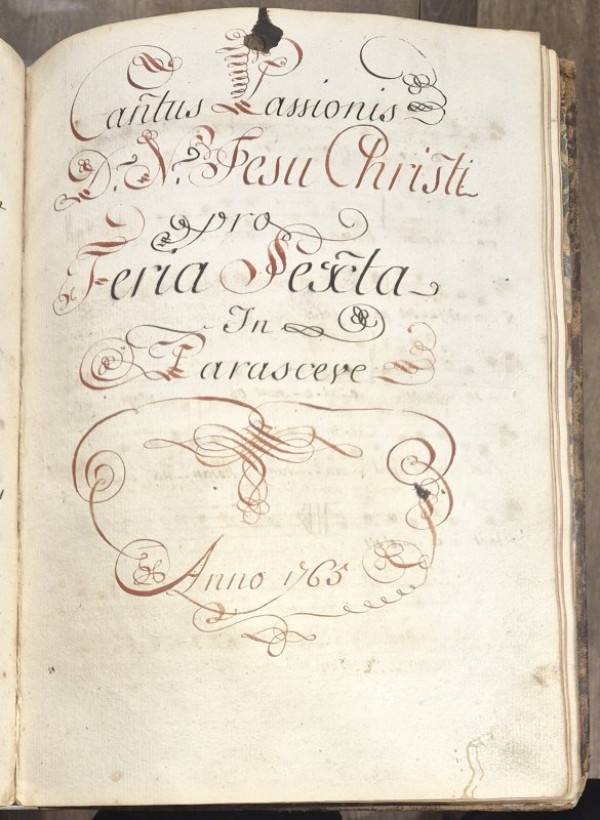 Cantus Passionis
D. N. Jesu Christi
pro
Feria Sexta
In
Parasceve
Anno 1765